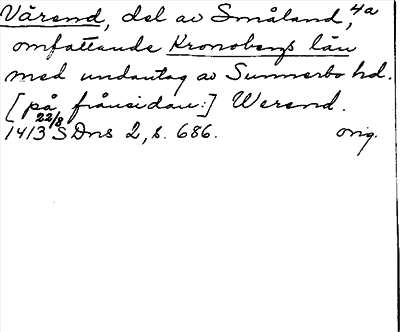 Värend, del av Småland, 4a
omfattande Kronobergs län
med undantag av Sunnerbo hd.
[på frånsidan:] Werend.
1413 22/8 SDns 2, s. 686. orig.